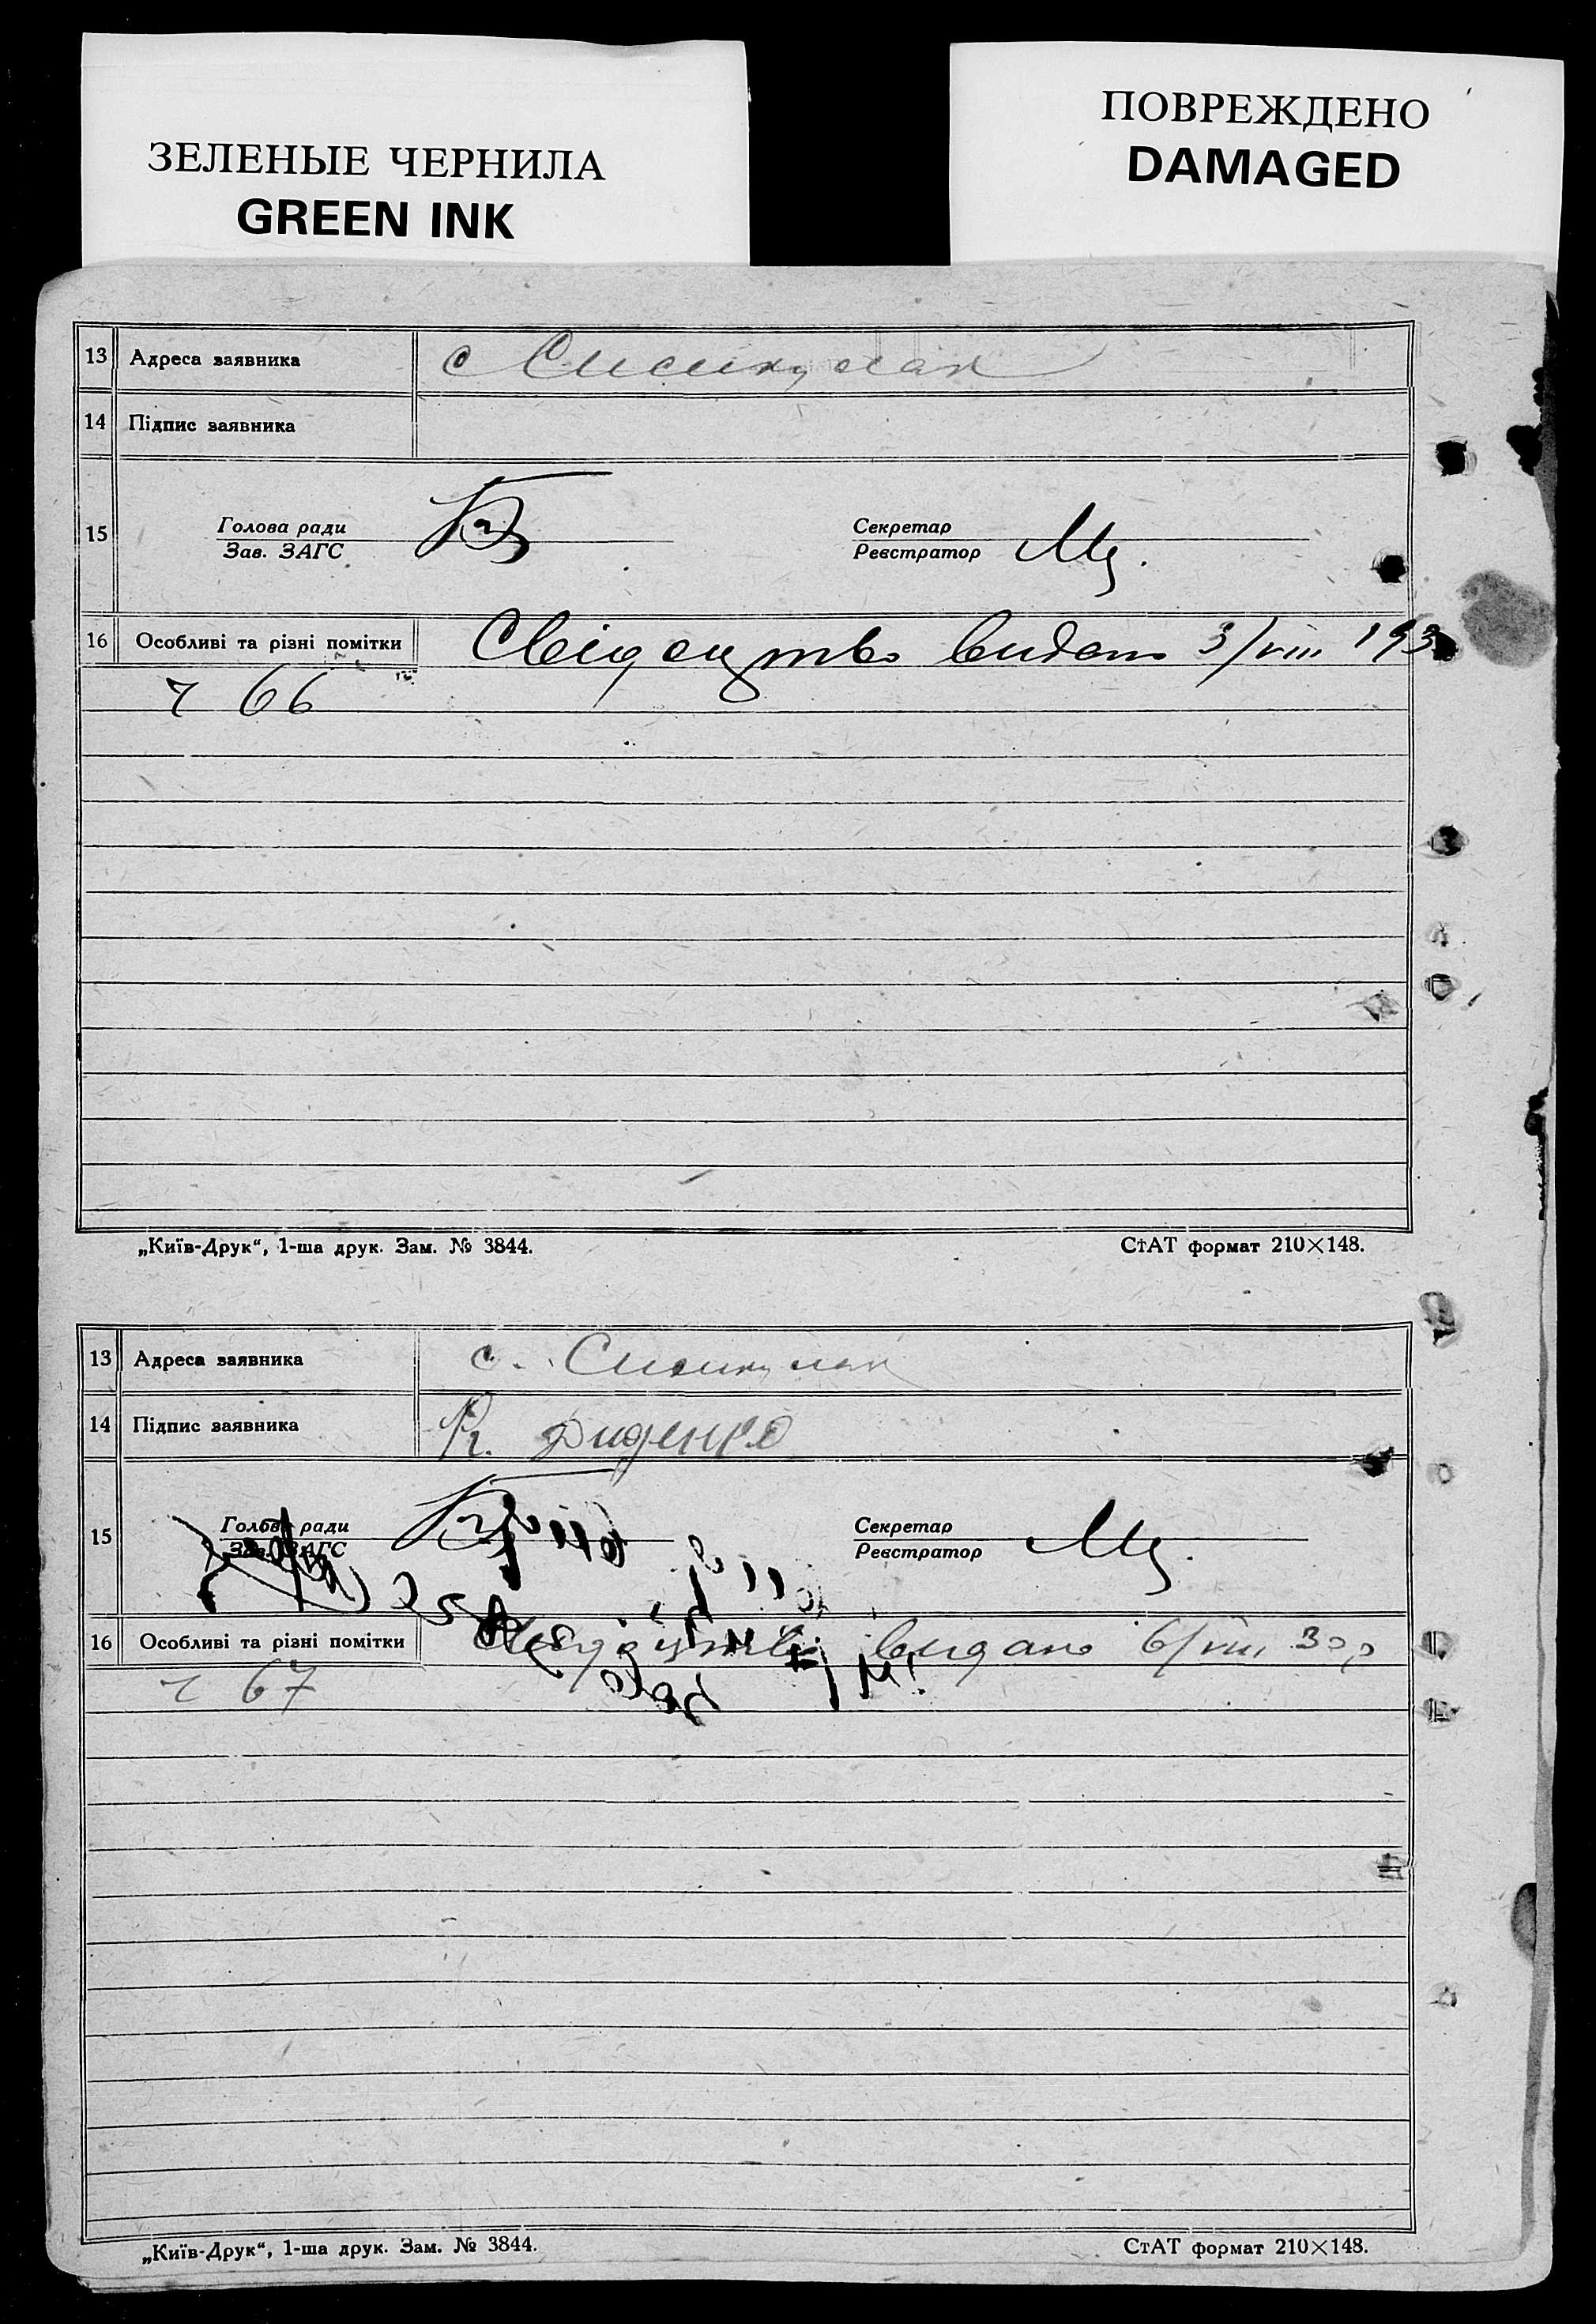 ЗЕЛЕНЫЕ ЧЕРНИЛА
GREEN INK
ПОВРЕЖДЕНО
DAMAGED
13 Адреса заявника с
14 Підпис заявника
15 Голова ради Секретар
Зав. ЗАГС Реєстратор
16 Особливі та різні помітки Свідоцтво видано 3/VIII 193
ч 66
„Київ-Друк“, 1-ша друк. Зам. № 3844. СтАТ формат 210×148.
13 Адреса заявника с.
14 Підпис заявника Диденко
15 Голова ради Секретар
Зав. ЗАГС Реєстратор
16 Особливі та різні помітки Свідоцтво видано 6/VIII 30 р
ч 67
„Київ-Друк“, 1-ша друк. Зам. № 3844. СтАТ формат 210×148.